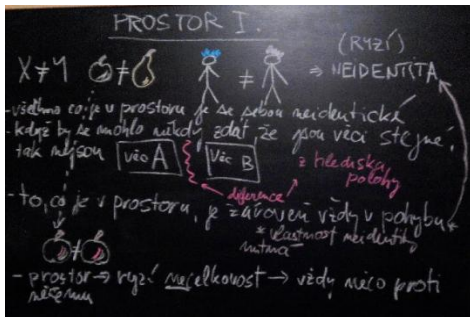 PROSTOR I.
(RYZÍ)
X≠Y ≠ ≠ ⇒ NEIDENTITA
- všechno co je v prostoru je se sebou neidentické
- když by se mohlo někdy zdát, že jsou věci stejné,
tak nejsou Věc A Věc B z hlediska
polohy
diference
- to, co je v prostoru, je zároveň vždy v pohybu*
* vlastnost neidentity
nutná
≠
- prostor → ryzí necelkovost → vždy něco proti
něčemu